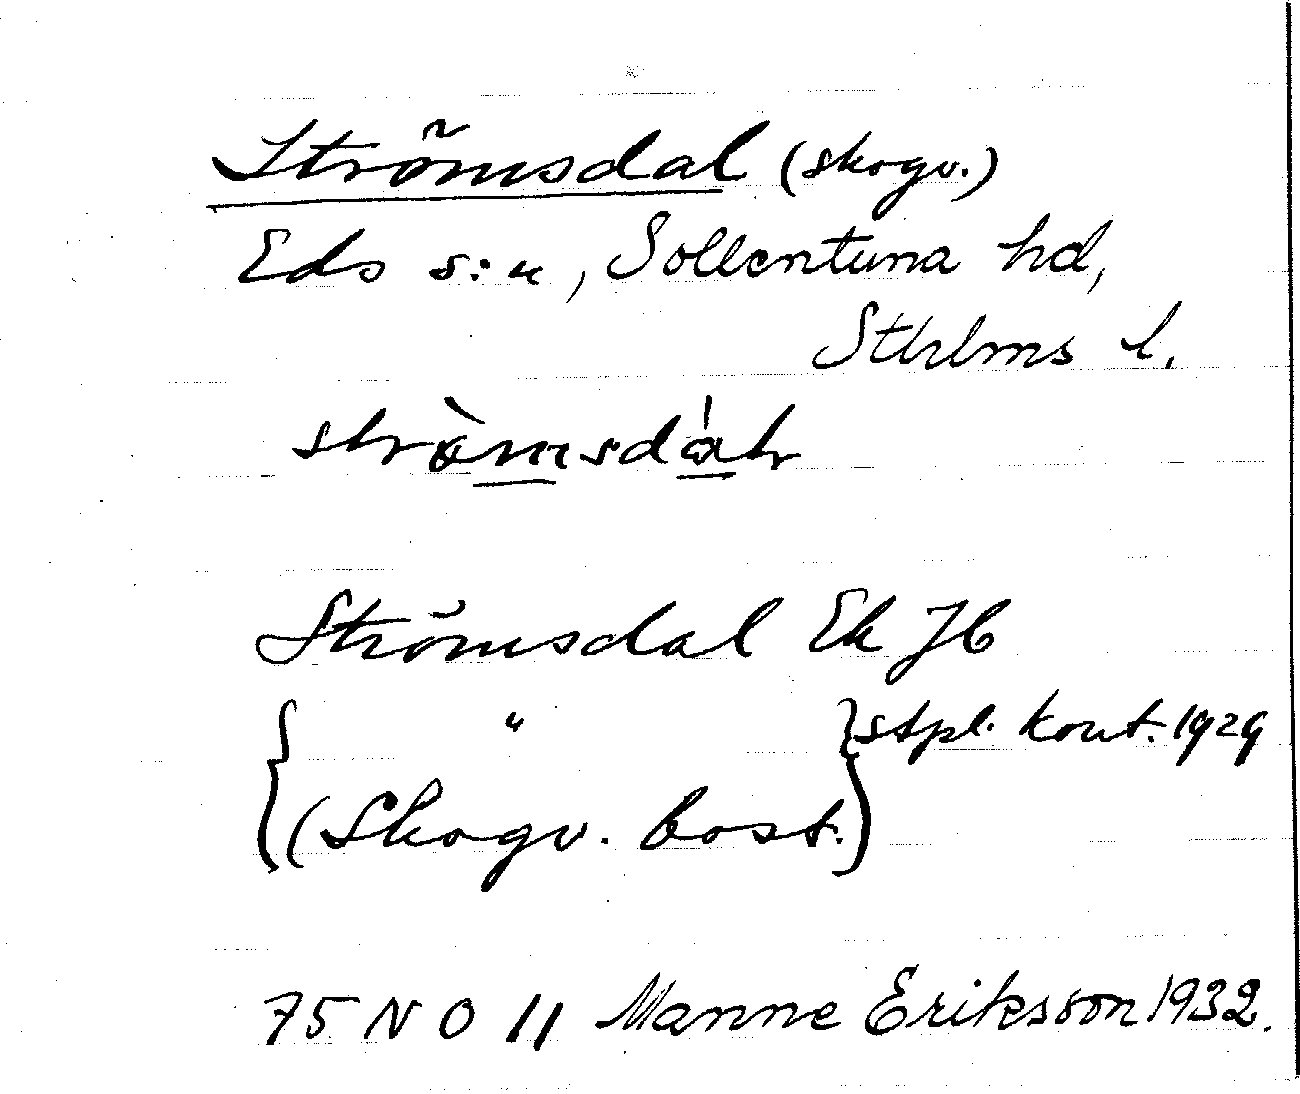 Strömsdal (skogv.)
Eds s:n, Sollentuna hd,
Sthlms l.
strò̀msdáh
Strömsdal Ek Jb
{ " } stpl. kont. 1929
{ (Skogv. bost.) }
75 N O 11 Manne Eriksson 1932.